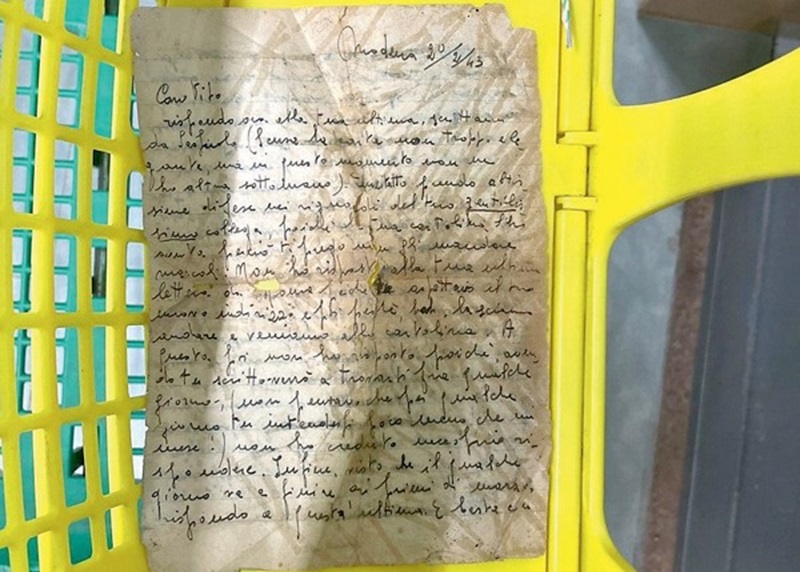 Modena 20/2/43
Caro Tito,
rispondo ora alla tua ultima, scritta
da (Scusa la carta non troppo ele
gante, ma in questo momento non ne
ho altra sottomano).
difese nei riguardi del tuo gentilis
simo collega poiché la tua cartolina l'ho
perciò ti prego non gli mandare
Non ho risposto alla tua ultima
lettera da poiché aspettavo il
nuovo indirizzo e poi perché, lasciamo
andare e veniamo alla cartolina. A
questa poi non ho risposto poiché, aven
do tu scritto verrò a trovarti fra qualche
giorno, (non pensavo che per qualche
giorno tu intendessi poco meno che un
mese!) non ho creduto necessario ri-
spondere. Infine, visto che il qualche
giorno va a finire ai primi di marzo,
rispondo a quest'ultima. E basta